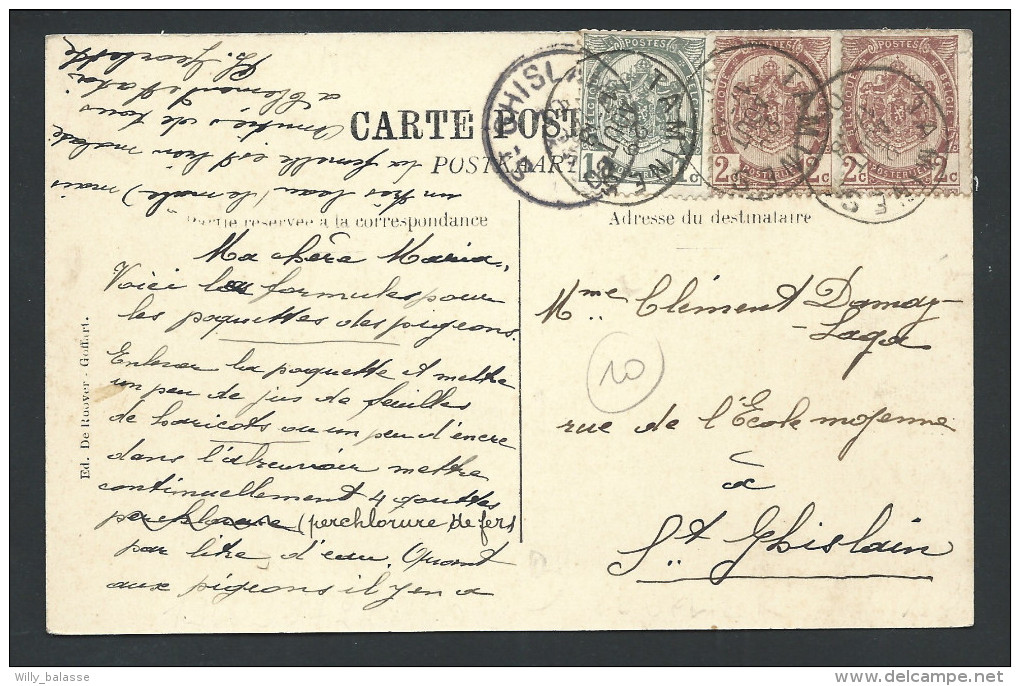 CARTE POST
POSTKAART
Partie réservée à la correspondance
Adresse du destinataire
Ed. De Ruover - Goffart.
Ma chère Maria,
Voici les formules pour
les paquettes des pigeons.
Enlever la paquette et mettre
un peu de jus de feuilles
de haricots ou un peu d'encre
dans l'abreuvoir mettre
continuellement 4 gouttes
perchlorure (perchlorure de fer)
par litre d'eau. Quant
aux pigeons il y en a
un très beau (le mâle) mais
la femelle est bien malade
Amitiés de tous
à Clément et à toi
Mme Clément Damay-
Laga
rue de l'École moyenne
à
St Ghislain
10
ST GHISLAIN
TAMINES
TAMINES
TAMINES
POSTES
BELGIQUE
1c 1c
POSTES
BELGIQUE
2c 2c
POSTES
BELGIQUE
2c 2c
Willy_balasse
delcampe.net